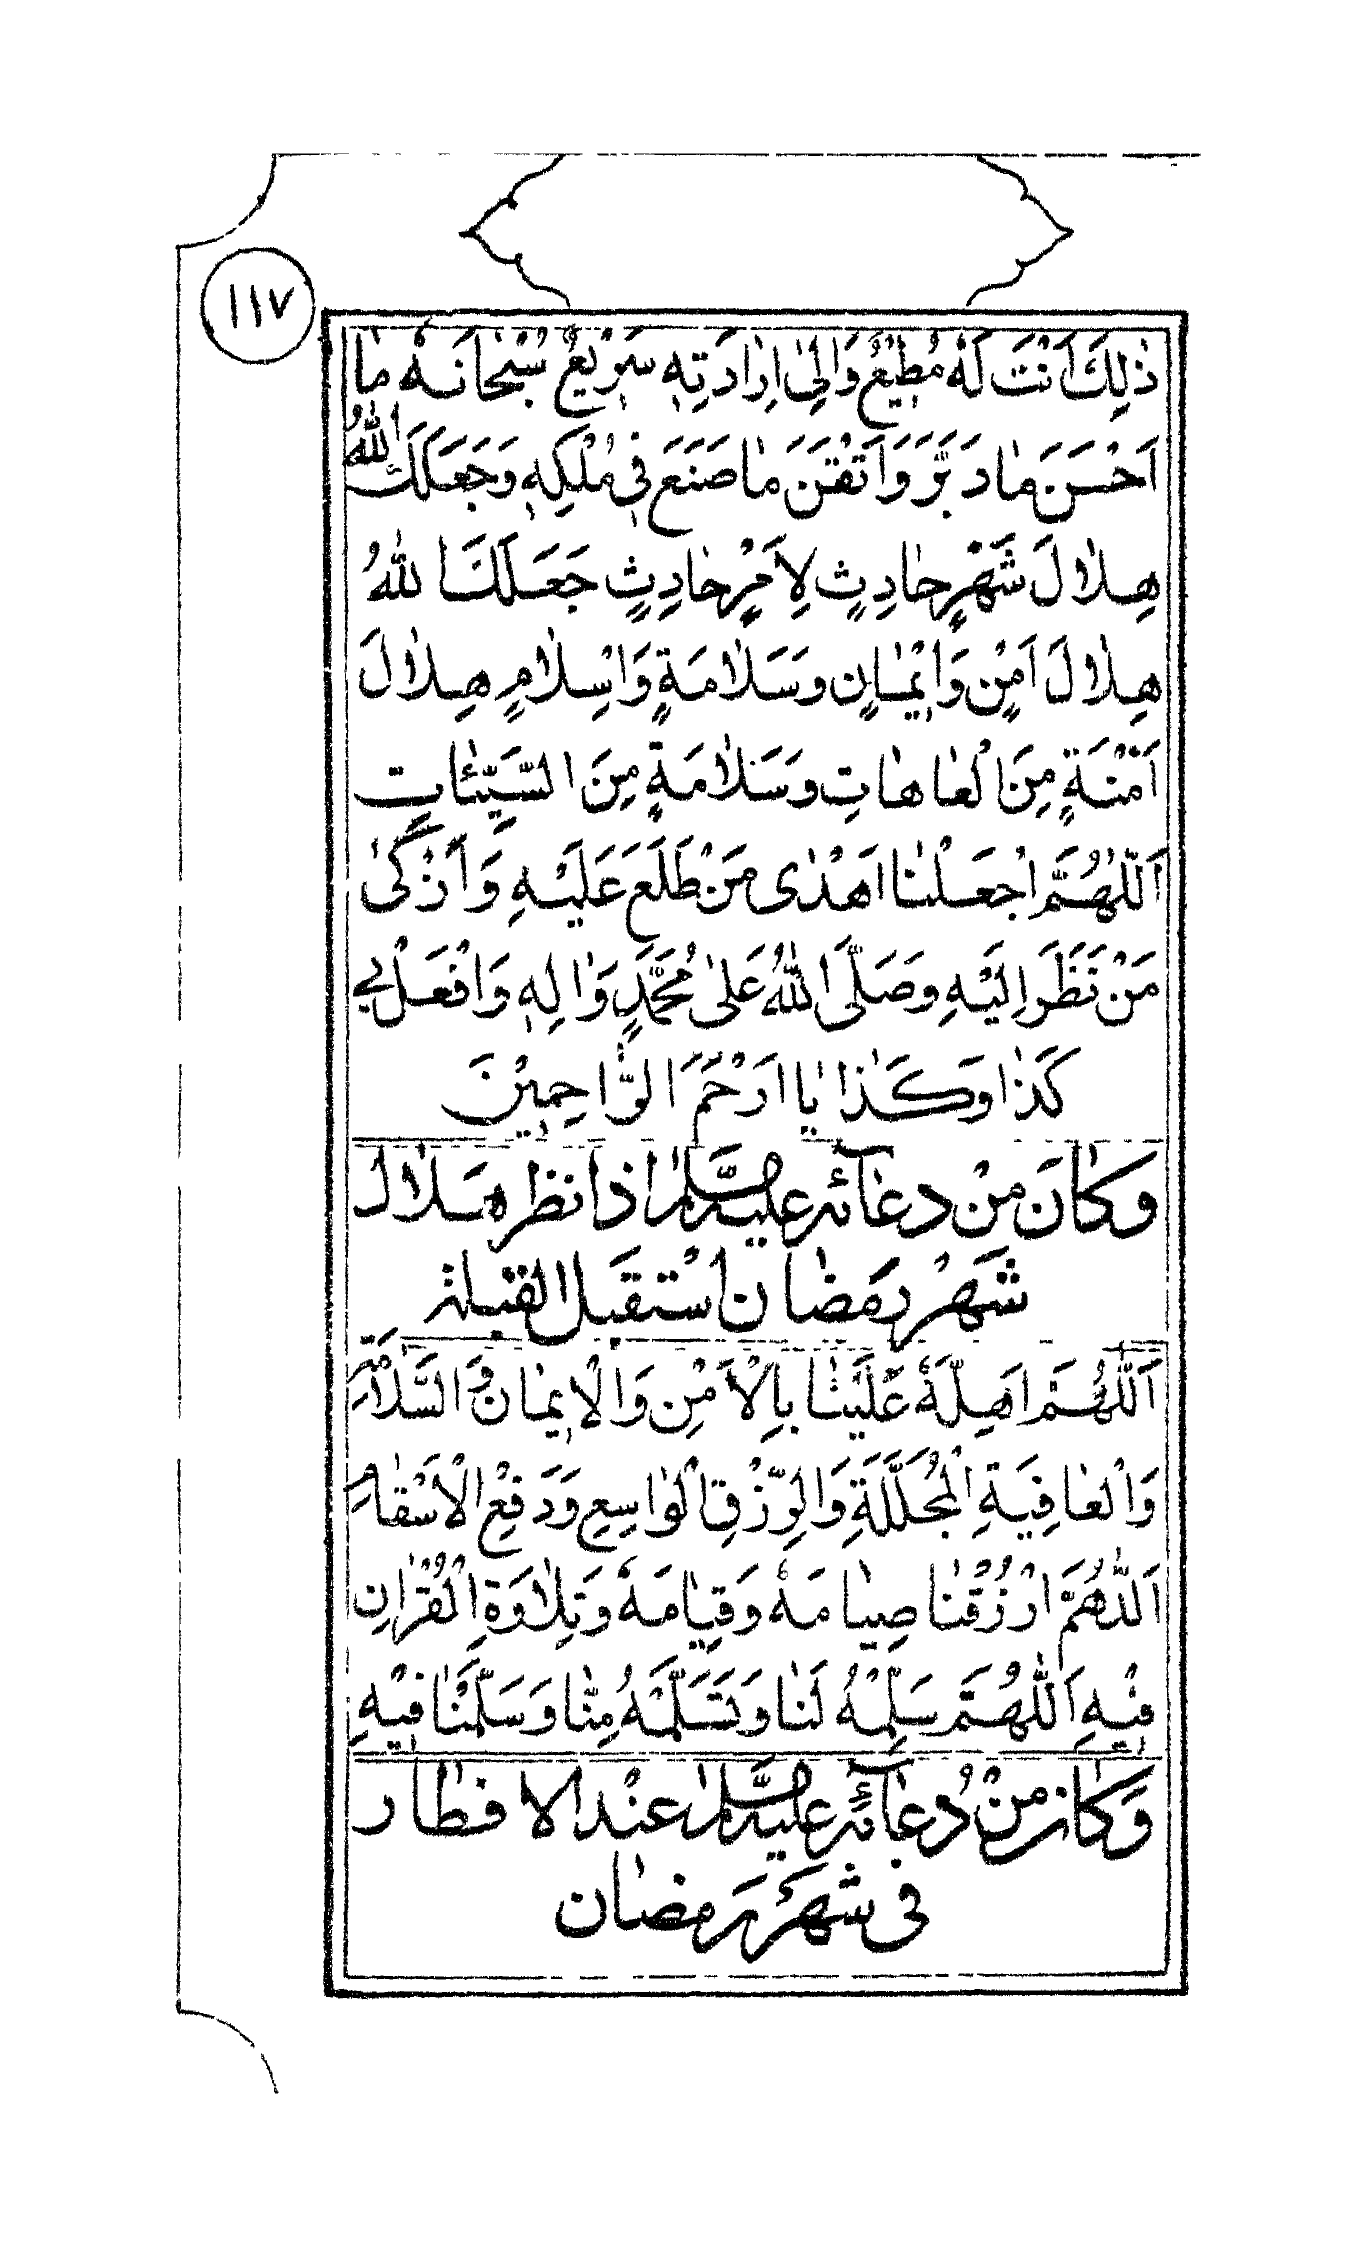 ١١٧
ذٰلِكَ اَنْتَ لَهُ مُطِيْعٌ وَاِلىٰ اِرٰادَتِهٖ سَرِيْعٌ سُبْحٰانَهُ مٰا
اَحْسَنَ مٰا دَبَّرَ وَاَتْقَنَ مٰا صَنَعَ فِي مُلْكِهٖ وَجَعَلَكَ اللّٰهُ
هِلٰالَ شَهْرٍ حٰادِثٍ لِاَمْرٍ حٰادِثٍ جَعَلَكَ اللّٰهُ
هِلٰالَ اَمْنٍ وَاِيْمٰانٍ وَسَلٰامَةٍ وَاِسْلٰامٍ هِلٰالَ
اَمَنَةٍ مِنَ الْعٰاهٰاتِ وَسَلٰامَةٍ مِنَ السَّيِّئٰاتِ
اَللّٰهُمَّ اجْعَلْنٰا اَهْدٰى مَنْ طَلَعَ عَلَيْهِ وَاَزْكىٰ
مَنْ نَظَرَ اِلَيْهِ وَصَلَّى اللّٰهُ عَلىٰ مُحَمَّدٍ وَاٰلِهٖ وَافْعَلْ بِي
كَذٰا وَكَذٰا يٰا اَرْحَمَ الرّٰاحِمِيْنَ
وَكٰانَ مِنْ دعٰائه عليه السلام اذا نظر هلٰال
شهر رمضٰان استقبل القبلة
اَللّٰهُمَّ اَهِلَّهُ عَلَيْنٰا بِالْاَمْنِ وَالْاِيمٰانِ وَالسَّلٰامَةِ
وَالْعٰافِيَةِ الْمُجَلَّلَةِ وَالرِّزْقِ الْوٰاسِعِ وَدَفْعِ الْاَسْقٰامِ
اَللّٰهُمَّ ارْزُقْنٰا صِيٰامَهُ وَقِيٰامَهُ وَتِلٰاوَةِ الْقُرْاٰنِ
فِيْهِ اَللّٰهُمَّ سَلِّمْهُ لَنٰا وَتَسَلَّمْهُ مِنّٰا وَسَلِّمْنٰا فِيْهِ
وَكٰان مِنْ دُعٰائه عليه السلام عند الافطٰار
في شهر رمضٰان